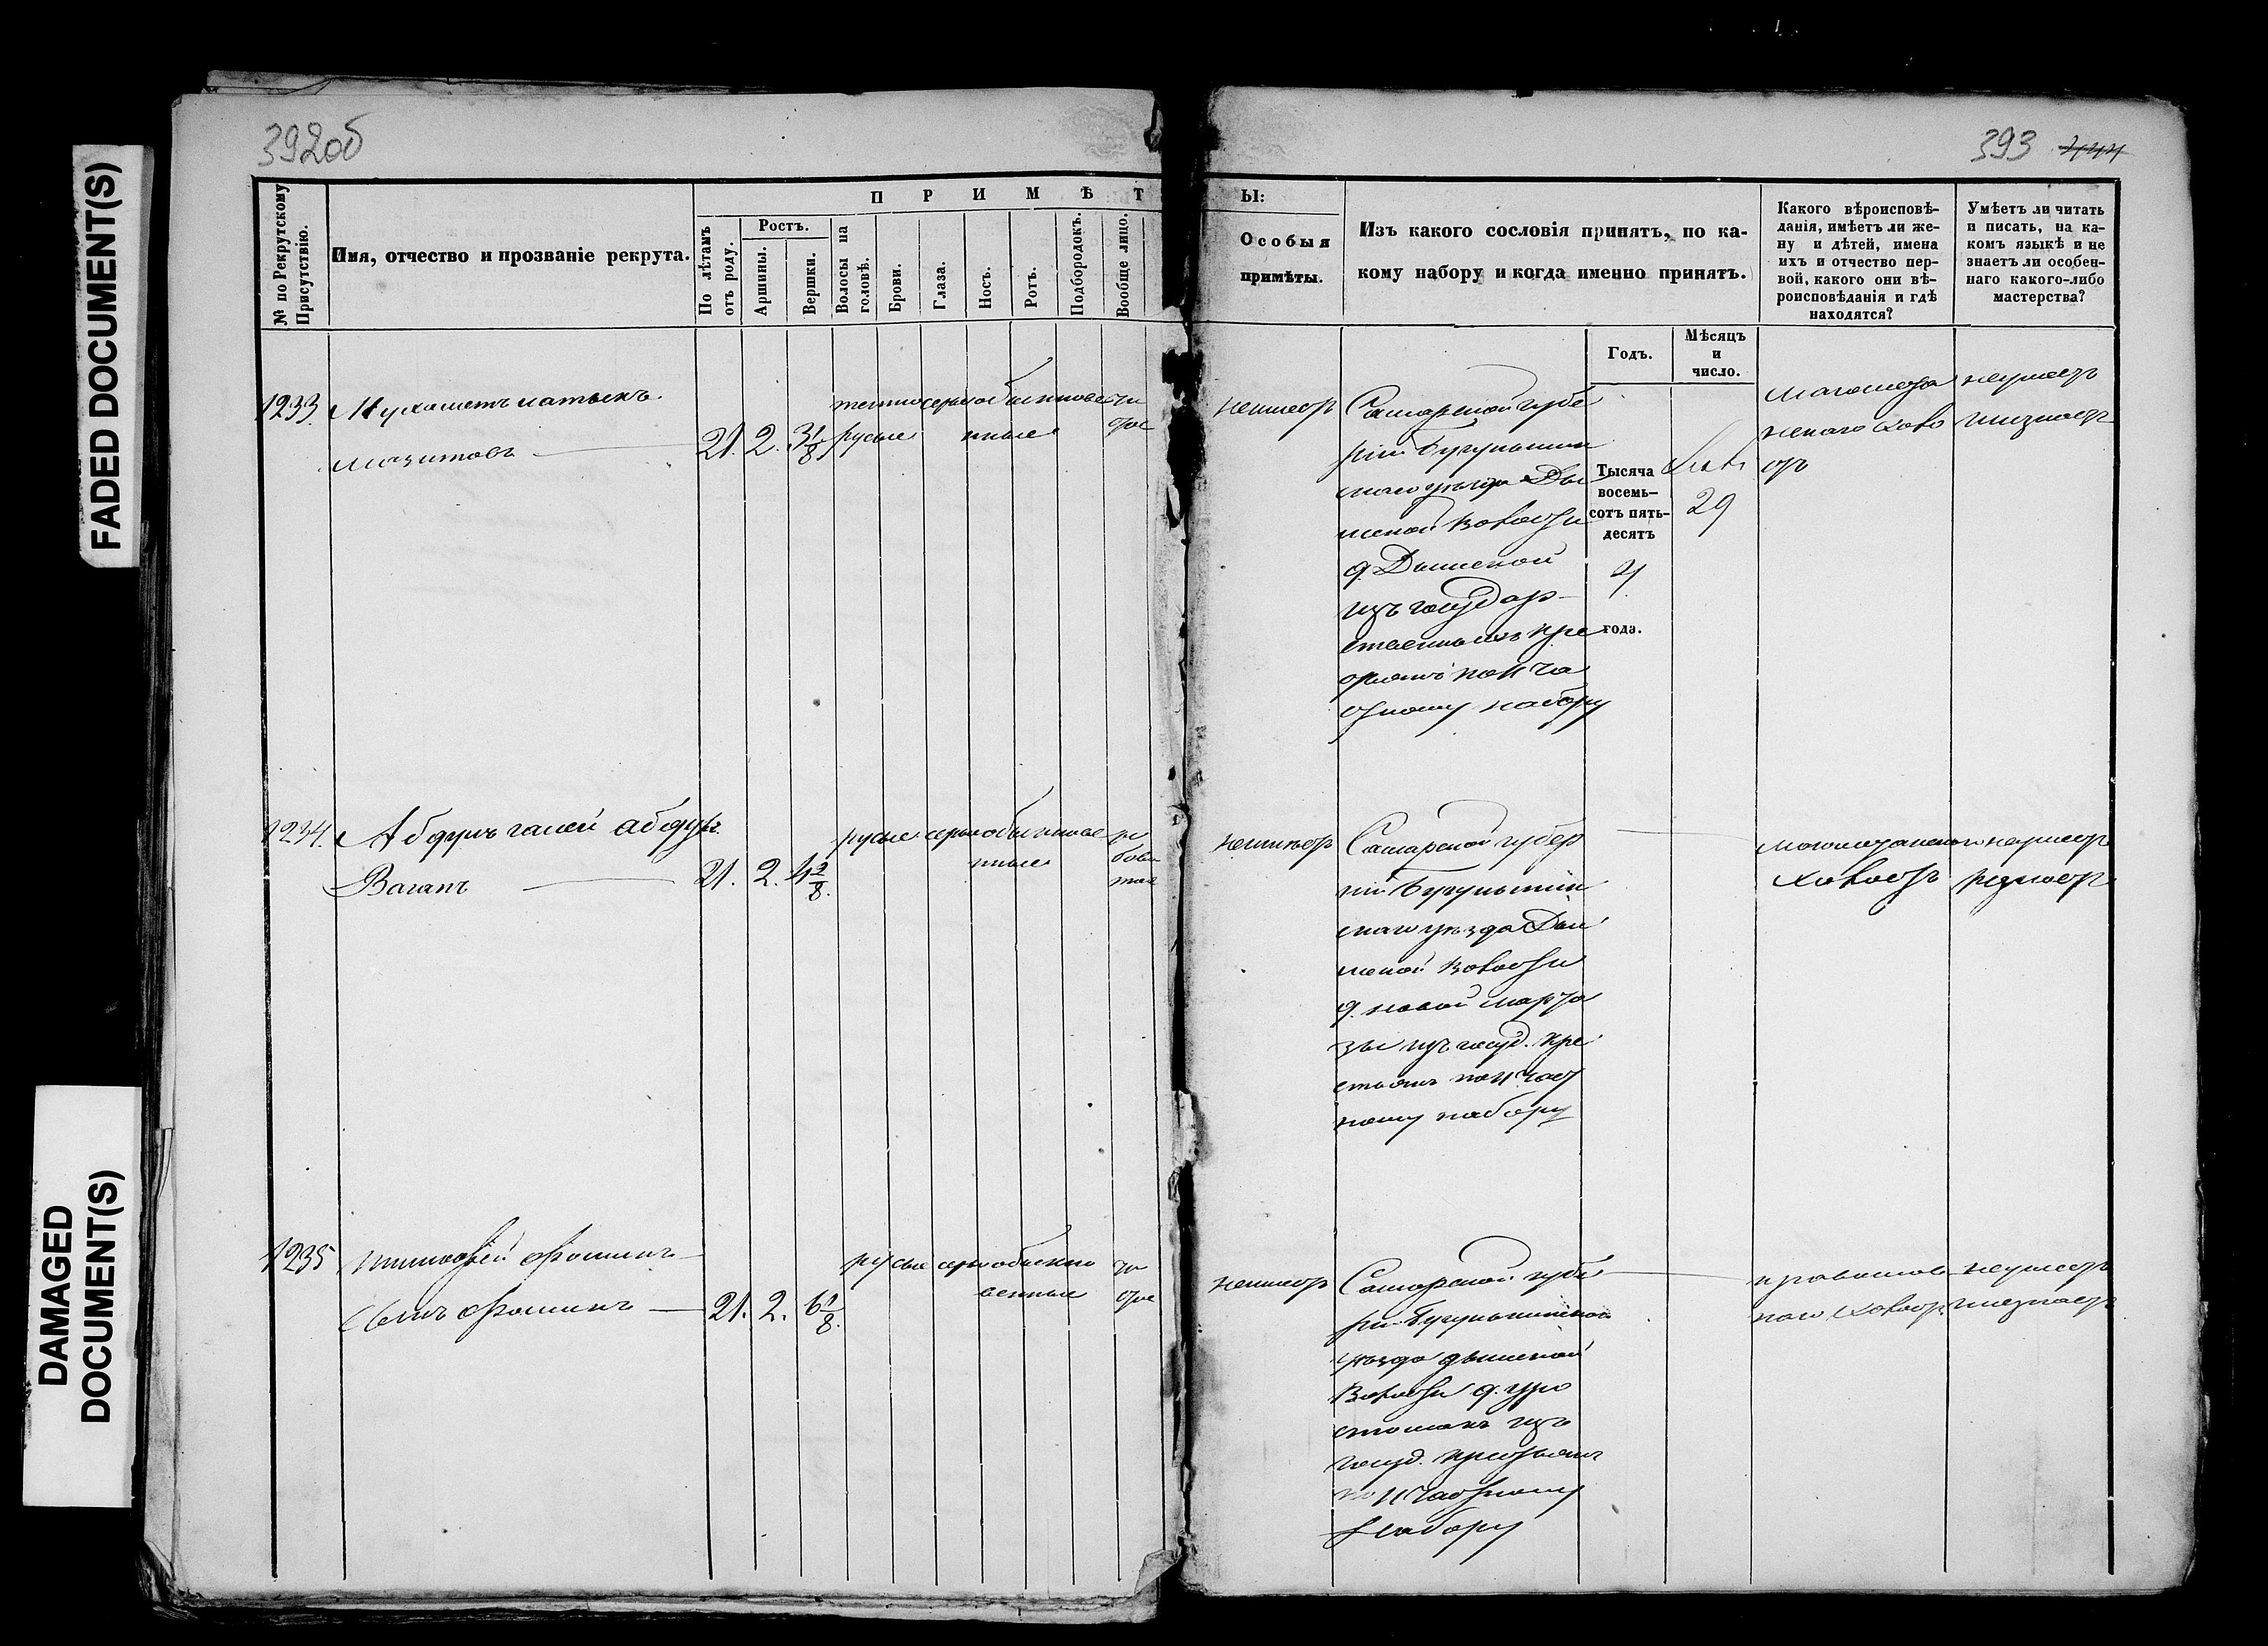 FADED DOCUMENT(S)
DAMAGED
DOCUMENT(S)
392об
393
№ по Рекрутскому
Присутствію.
Имя, отчество и прозваніе рекрута.
ПРИМѢТ
По лѣтамъ
отъ роду.
Ростъ.
Аршины.
Вершки.
Волосы на
головѣ.
Брови.
Глаза.
Носъ.
Ротъ.
Подбородокъ.
Вообще лицо.
Ы:
Особыя
примѣты.
Изъ какого сословія принятъ, по ка-
кому набору и когда именно принятъ.
Годъ.
Мѣсяцъ
и
число.
Какого вѣроисповѣ-
данія, имѣетъ ли же-
ну и дѣтей, имена
ихъ и отчество пер-
вой, какого они вѣ-
роисповѣданія и гдѣ
находятся?
Умѣетъ ли читать
и писать, на ка-
комъ языкѣ и не
знаетъ ли особен-
наго какого-либо
мастерства?
1233.
Мухаметъ латыпъ
мазитовъ
21. 2. 3 1/8
темно серые обыкнове чи
русые нные стое
неимеетъ
Самарской губе
рніи Бугульмин
скаго уезда Ды
мской волости
д. Дымской
изъ государ-
ственныхъ кре
стьянъ по 11 ча
стному набору
Тысяча
восемь-
сотъ пять-
десятъ
4
года.
29
магомета
нскаго холо
стъ
неумеетъ
инезнаетъ
1234.
Абдулъ галей абдулъ
Вагапъ
21. 2. 4 2/8.
русые серые обыкнове ря
нные бова
тое
неимѣетъ
Самарской губер
ніи Бугульмин
скаго уѣзда Ды
мской волости
д. новой
зы изъ госуд. кре
стьянъ по 11 част
ному набору
магометанскаго
холостъ
неумеетъ
1235
тимофей фоминъ
сынъ фоминъ
21. 2. 6 1/8.
русые серые обыкно чи
венные стое
неимеетъ
Самарской губе
рніи Бугульминскаго
уѣзда дымской
Волости д.
изъ
госуд. крестьянъ
по 11 частному
набору
православ
наго холостъ
неумеетъ
инезнаетъ